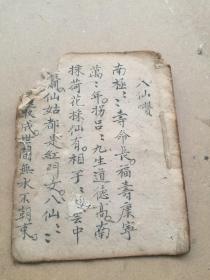 八仙讚
南極〻〻壽命長。福壽康寧
萬〻年。拐呂〻〻九生道德高。南
採荷花採仙有。相子〻〻雲中
賢仙姑都是紅門女。八仙〻〻
成世間無水不朝東。